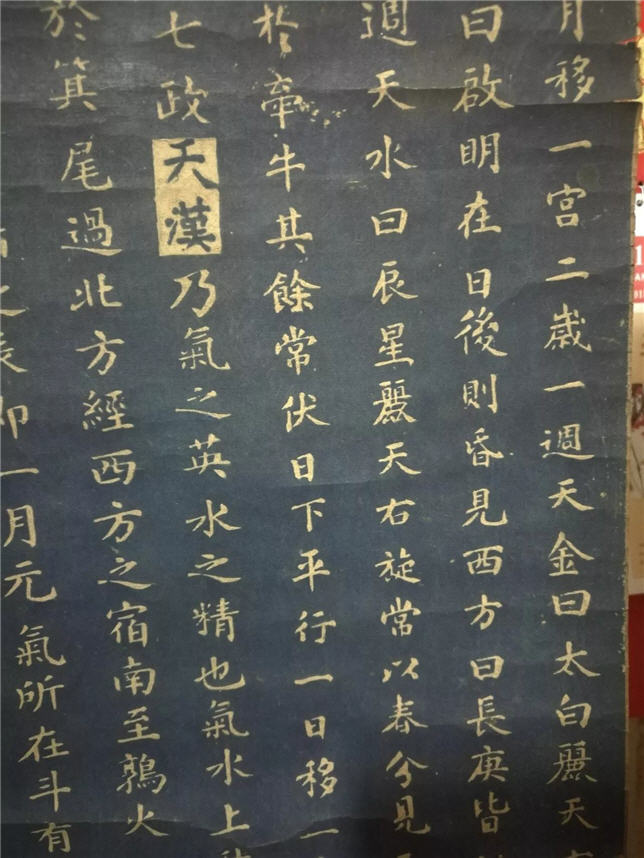 月移一宮二歲一週天金曰太白麗天
曰啟明在日後則昏見西方曰長庚皆
週天水曰辰星麗天右旋常以春分見
於牽牛其餘常伏日下平行一日移一
七政天漢乃氣之英水之精也氣水上
於箕尾過北方經西方之宿南至鶉火
之長卯一月元氣所在斗有